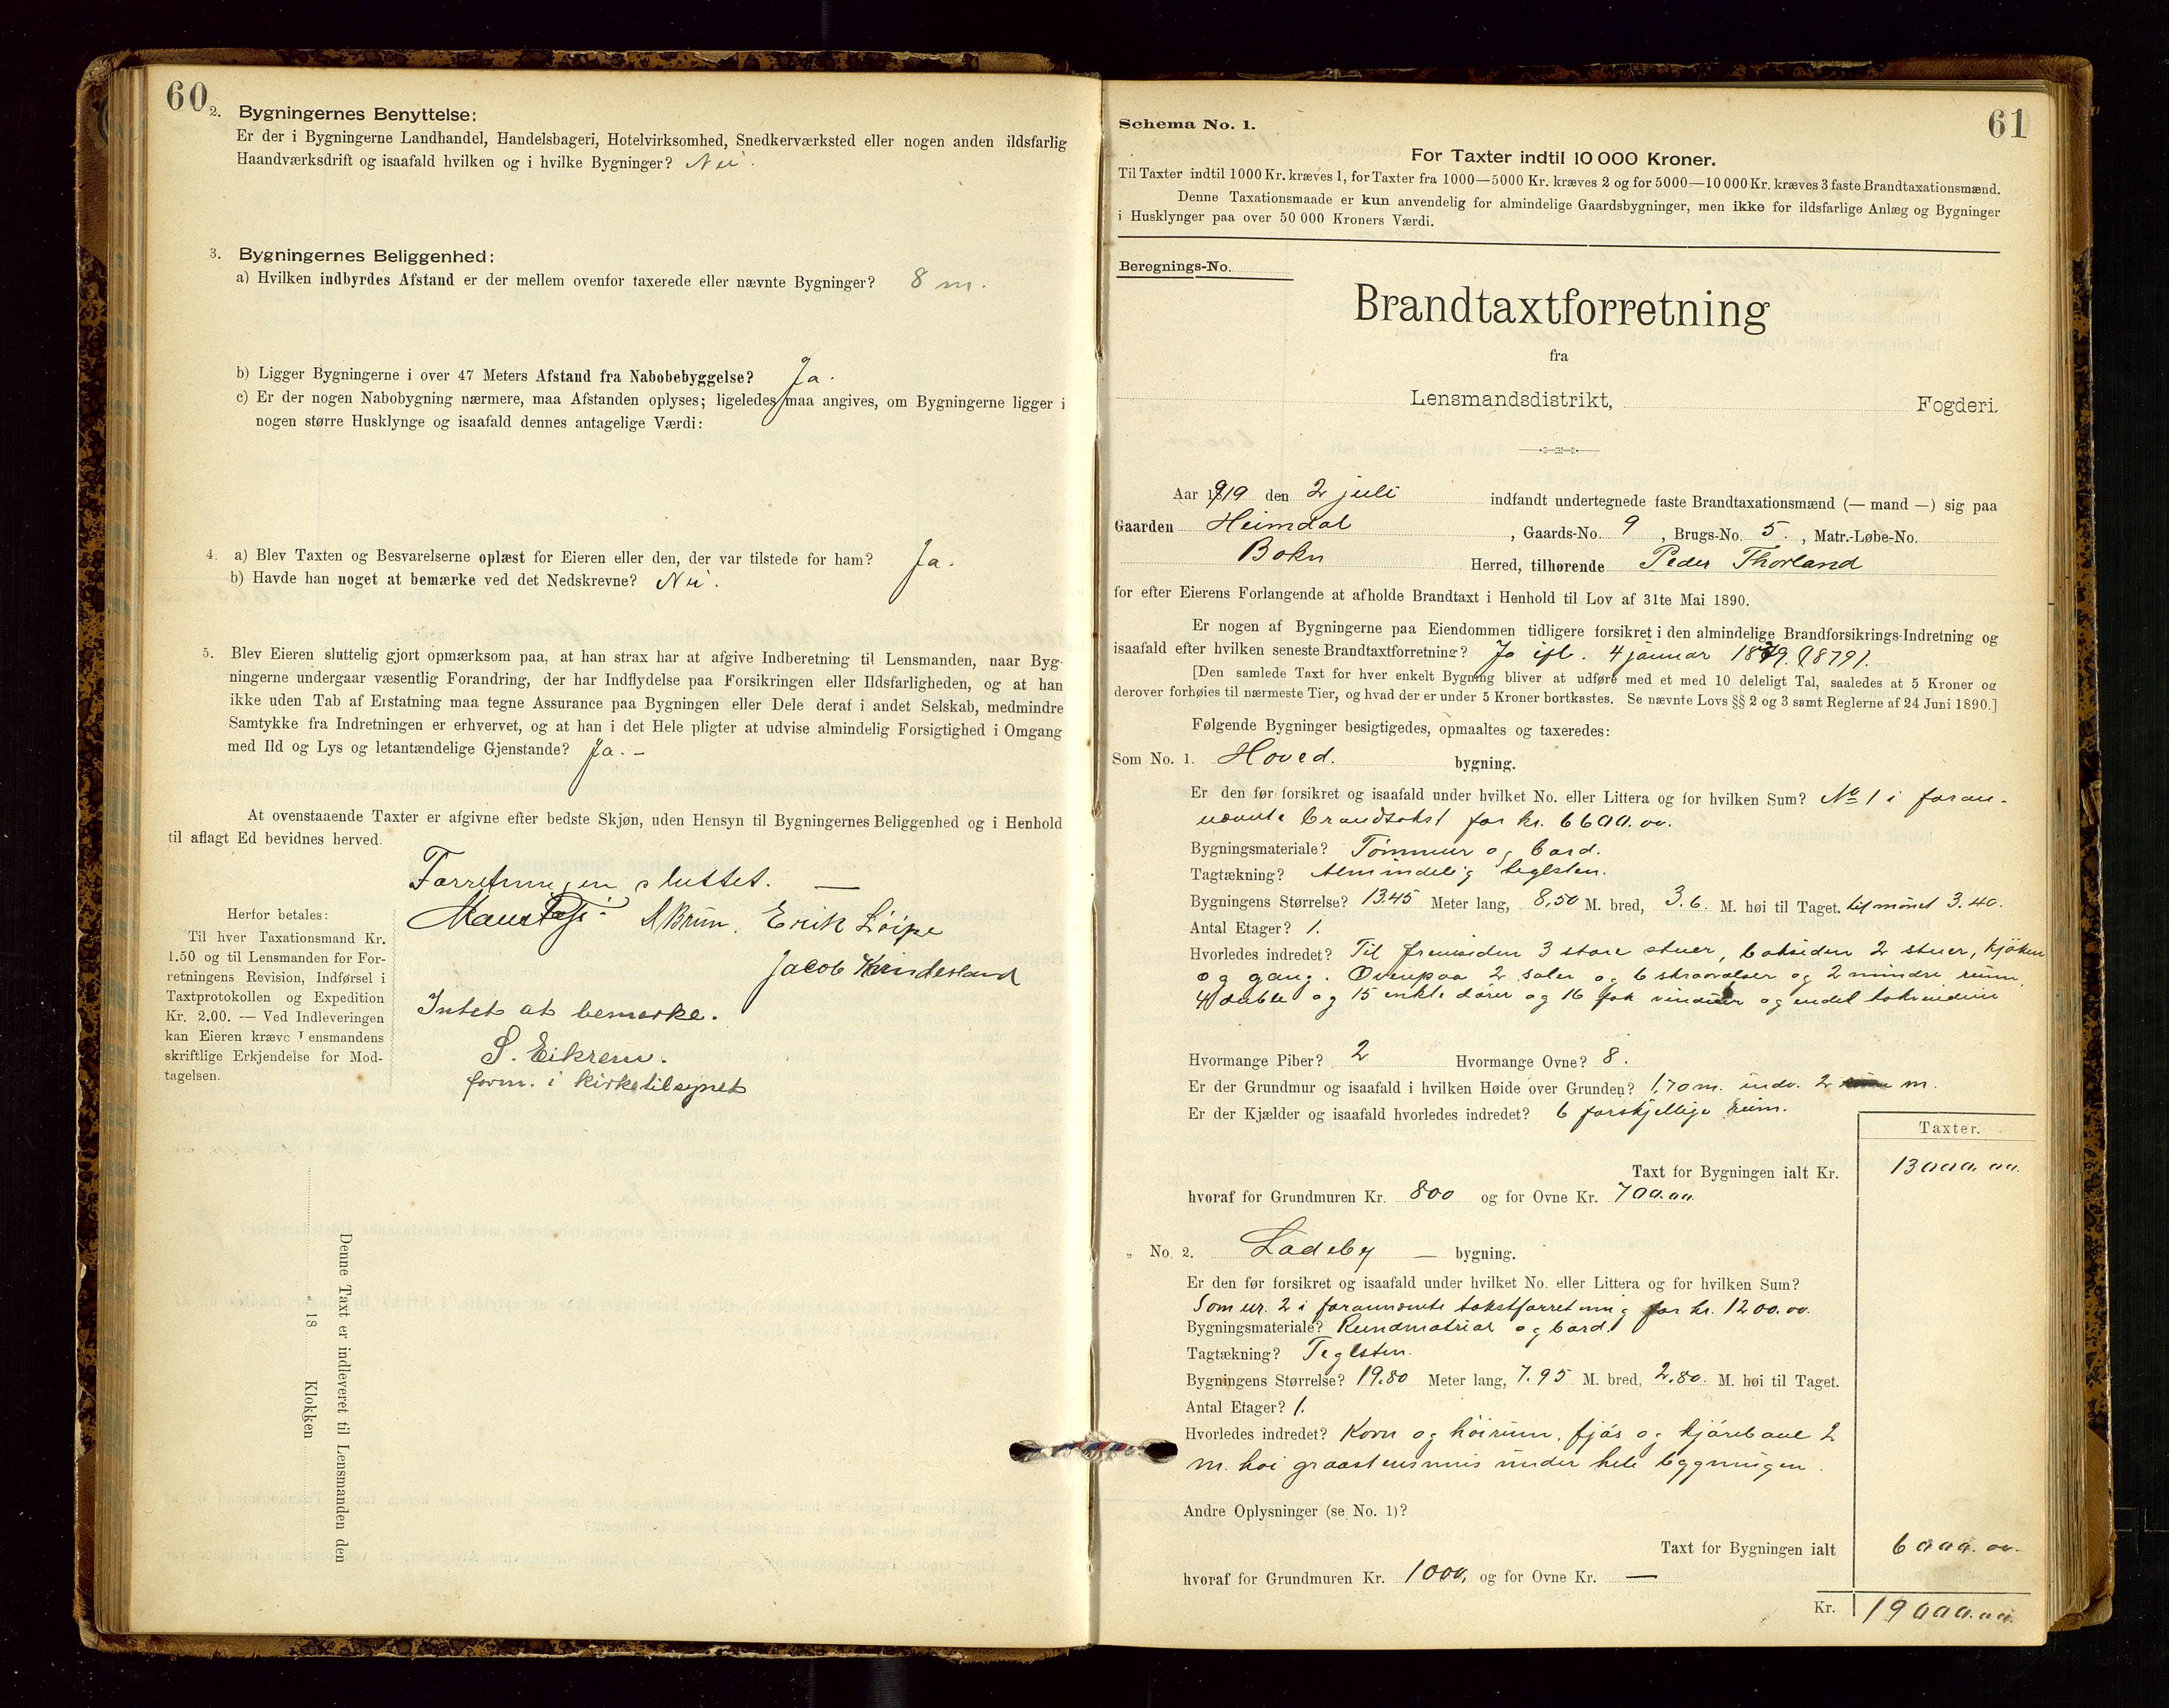 60
2. Bygningernes Benyttelse:
Er der i Bygningerne Landhandel, Handelsbageri, Hotelvirksomhed, Snedkerværksted eller nogen anden ildsfarlig
Haandværksdrift og isaafald hvilken og i hvilke Bygninger? Nei.
3. Bygningernes Beliggenhed:
a) Hvilken indbyrdes Afstand er der mellem ovenfor taxerede eller nævnte Bygninger? 8 m.
b) Ligger Bygningerne i over 47 Meters Afstand fra Nabobebyggelse? Ja.
c) Er der nogen Nabobygning nærmere, maa Afstanden oplyses; ligeledes maa angives, om Bygningerne ligger i
nogen større Husklynge og isaafald dennes antagelige Værdi:
4. a) Blev Taxten og Besvarelserne oplæst for Eieren eller den, der var tilstede for ham? Ja.
b) Havde han noget at bemærke ved det Nedskrevne? Nei.
5. Blev Eieren sluttelig gjort opmærksom paa, at han strax har at afgive Indberetning til Lensmanden, naar Byg-
ningerne undergaar væsentlig Forandring, der har Indflydelse paa Forsikringen eller Ildsfarligheden, og at han
ikke uden Tab af Erstatning maa tegne Assurance paa Bygningen eller Dele deraf i andet Selskab, medmindre
Samtykke fra Indretningen er erhvervet, og at han i det Hele pligter at udvise almindelig Forsigtighed i Omgang
med Ild og Lys og letantændelige Gjenstande? Ja. –
At ovenstaaende Taxter er afgivne efter bedste Skjøn, uden Hensyn til Bygningernes Beliggenhed og i Henhold
til aflagt Ed bevidnes herved.
Forretningen sluttet. —
A Brun. Erik Löipe
Jacob
Intet at bemerke.
S. Eikrem.
form. i kirketilsynet
Herfor betales:
Til hver Taxationsmand Kr.
1.50 og til Lensmanden for For-
retningens Revision, Indførsel i
Taxtprotokollen og Expedition
Kr. 2.00. — Ved Indleveringen
kan Eieren kræve Lensmandens
skriftlige Erkjendelse for Mod-
tagelsen.
Denne Taxt er indleveret til Lensmanden den
18 Klokken
61
Schema No. 1.
For Taxter indtil 10 000 Kroner.
Til Taxter indtil 1000 Kr. kræves 1, for Taxter fra 1000—5000 Kr. kræves 2 og for 5000—10 000 Kr. kræves 3 faste Brandtaxationsmænd.
Denne Taxationsmaade er kun anvendelig for almindelige Gaardsbygninger, men ikke for ildsfarlige Anlæg og Bygninger
i Husklynger paa over 50 000 Kroners Værdi.
Beregnings-No.
Brandtaxtforretning
fra
Lensmandsdistrikt, Fogderi.
Aar 1919 den 2 juli indfandt undertegnede faste Brandtaxationsmænd (— mand —) sig paa
Gaarden Heimdal, Gaards-No. 9, Brugs-No. 5., Matr.-Løbe-No.
Bokn Herred, tilhørende Peder Thorland
for efter Eierens Forlangende at afholde Brandtaxt i Henhold til Lov af 31te Mai 1890.
Er nogen af Bygningerne paa Eiendommen tidligere forsikret i den almindelige Brandforsikrings-Indretning og
isaafald efter hvilken seneste Brandtaxtforretning? Ja ifl. 4 januar 1879. (1879).
[Den samlede Taxt for hver enkelt Bygning bliver at udføre med et med 10 deleligt Tal, saaledes at 5 Kroner og
derover forhøies til nærmeste Tier, og hvad der er under 5 Kroner bortkastes. Se nævnte Lovs §§ 2 og 3 samt Reglerne af 24 Juni 1890.]
Følgende Bygninger besigtigedes, opmaaltes og taxeredes:
Som No. 1. Hoved. bygning.
Er den før forsikret og isaafald under hvilket No. eller Littera og for hvilken Sum? No 1 i foran-
nævnte brandtakst for kr. 6600.00.
Bygningsmateriale? Tömmer og bord.
Tagtækning? Almindelig teglsten.
Bygningens Størrelse? 13.45 Meter lang, 8,50 M. bred, 3.6. M. høi til Taget. til mönet 3.40.
Antal Etager? 1.
Hvorledes indredet? Til fremsiden 3 store stuer, baksiden 2 stuer, kjöken
og gang. Ovenpaa 2 saler og 6 skraavelser og 2 mindre rum,
4 doble og 15 enkle dører og 16 fak vinduer og endel takvinduer
Hvormange Piber? 2 Hvormange Ovne? 8.
Er der Grundmur og isaafald i hvilken Høide over Grunden? 1,70 m. indv. 2 m.
Er der Kjælder og isaafald hvorledes indredet? 6 forskjellige rum.
Taxter.
Taxt for Bygningen ialt Kr. 13000.00.
hvoraf for Grundmuren Kr. 800 og for Ovne Kr. 700.00.
„ No. 2. Ladeby — bygning.
Er den før forsikret og isaafald under hvilket No. eller Littera og for hvilken Sum?
Som nr. 2 i forannævnte takstforretning for kr. 1200.00.
Bygningsmateriale? Rundmatrial og bord.
Tagtækning? Teglsten.
Bygningens Størrelse? 19.80 Meter lang, 7.95 M. bred, 2.80. M. høi til Taget.
Antal Etager? 1.
Hvorledes indredet? Korn og höirum, fjös og kjörebane 2
m. höi graastensmur under hele bygningen.
Andre Oplysninger (se No. 1)?
Taxt for Bygningen ialt 6000.00.
hvoraf for Grundmuren Kr. 1000, og for Ovne Kr. —
Kr. 19000.00.